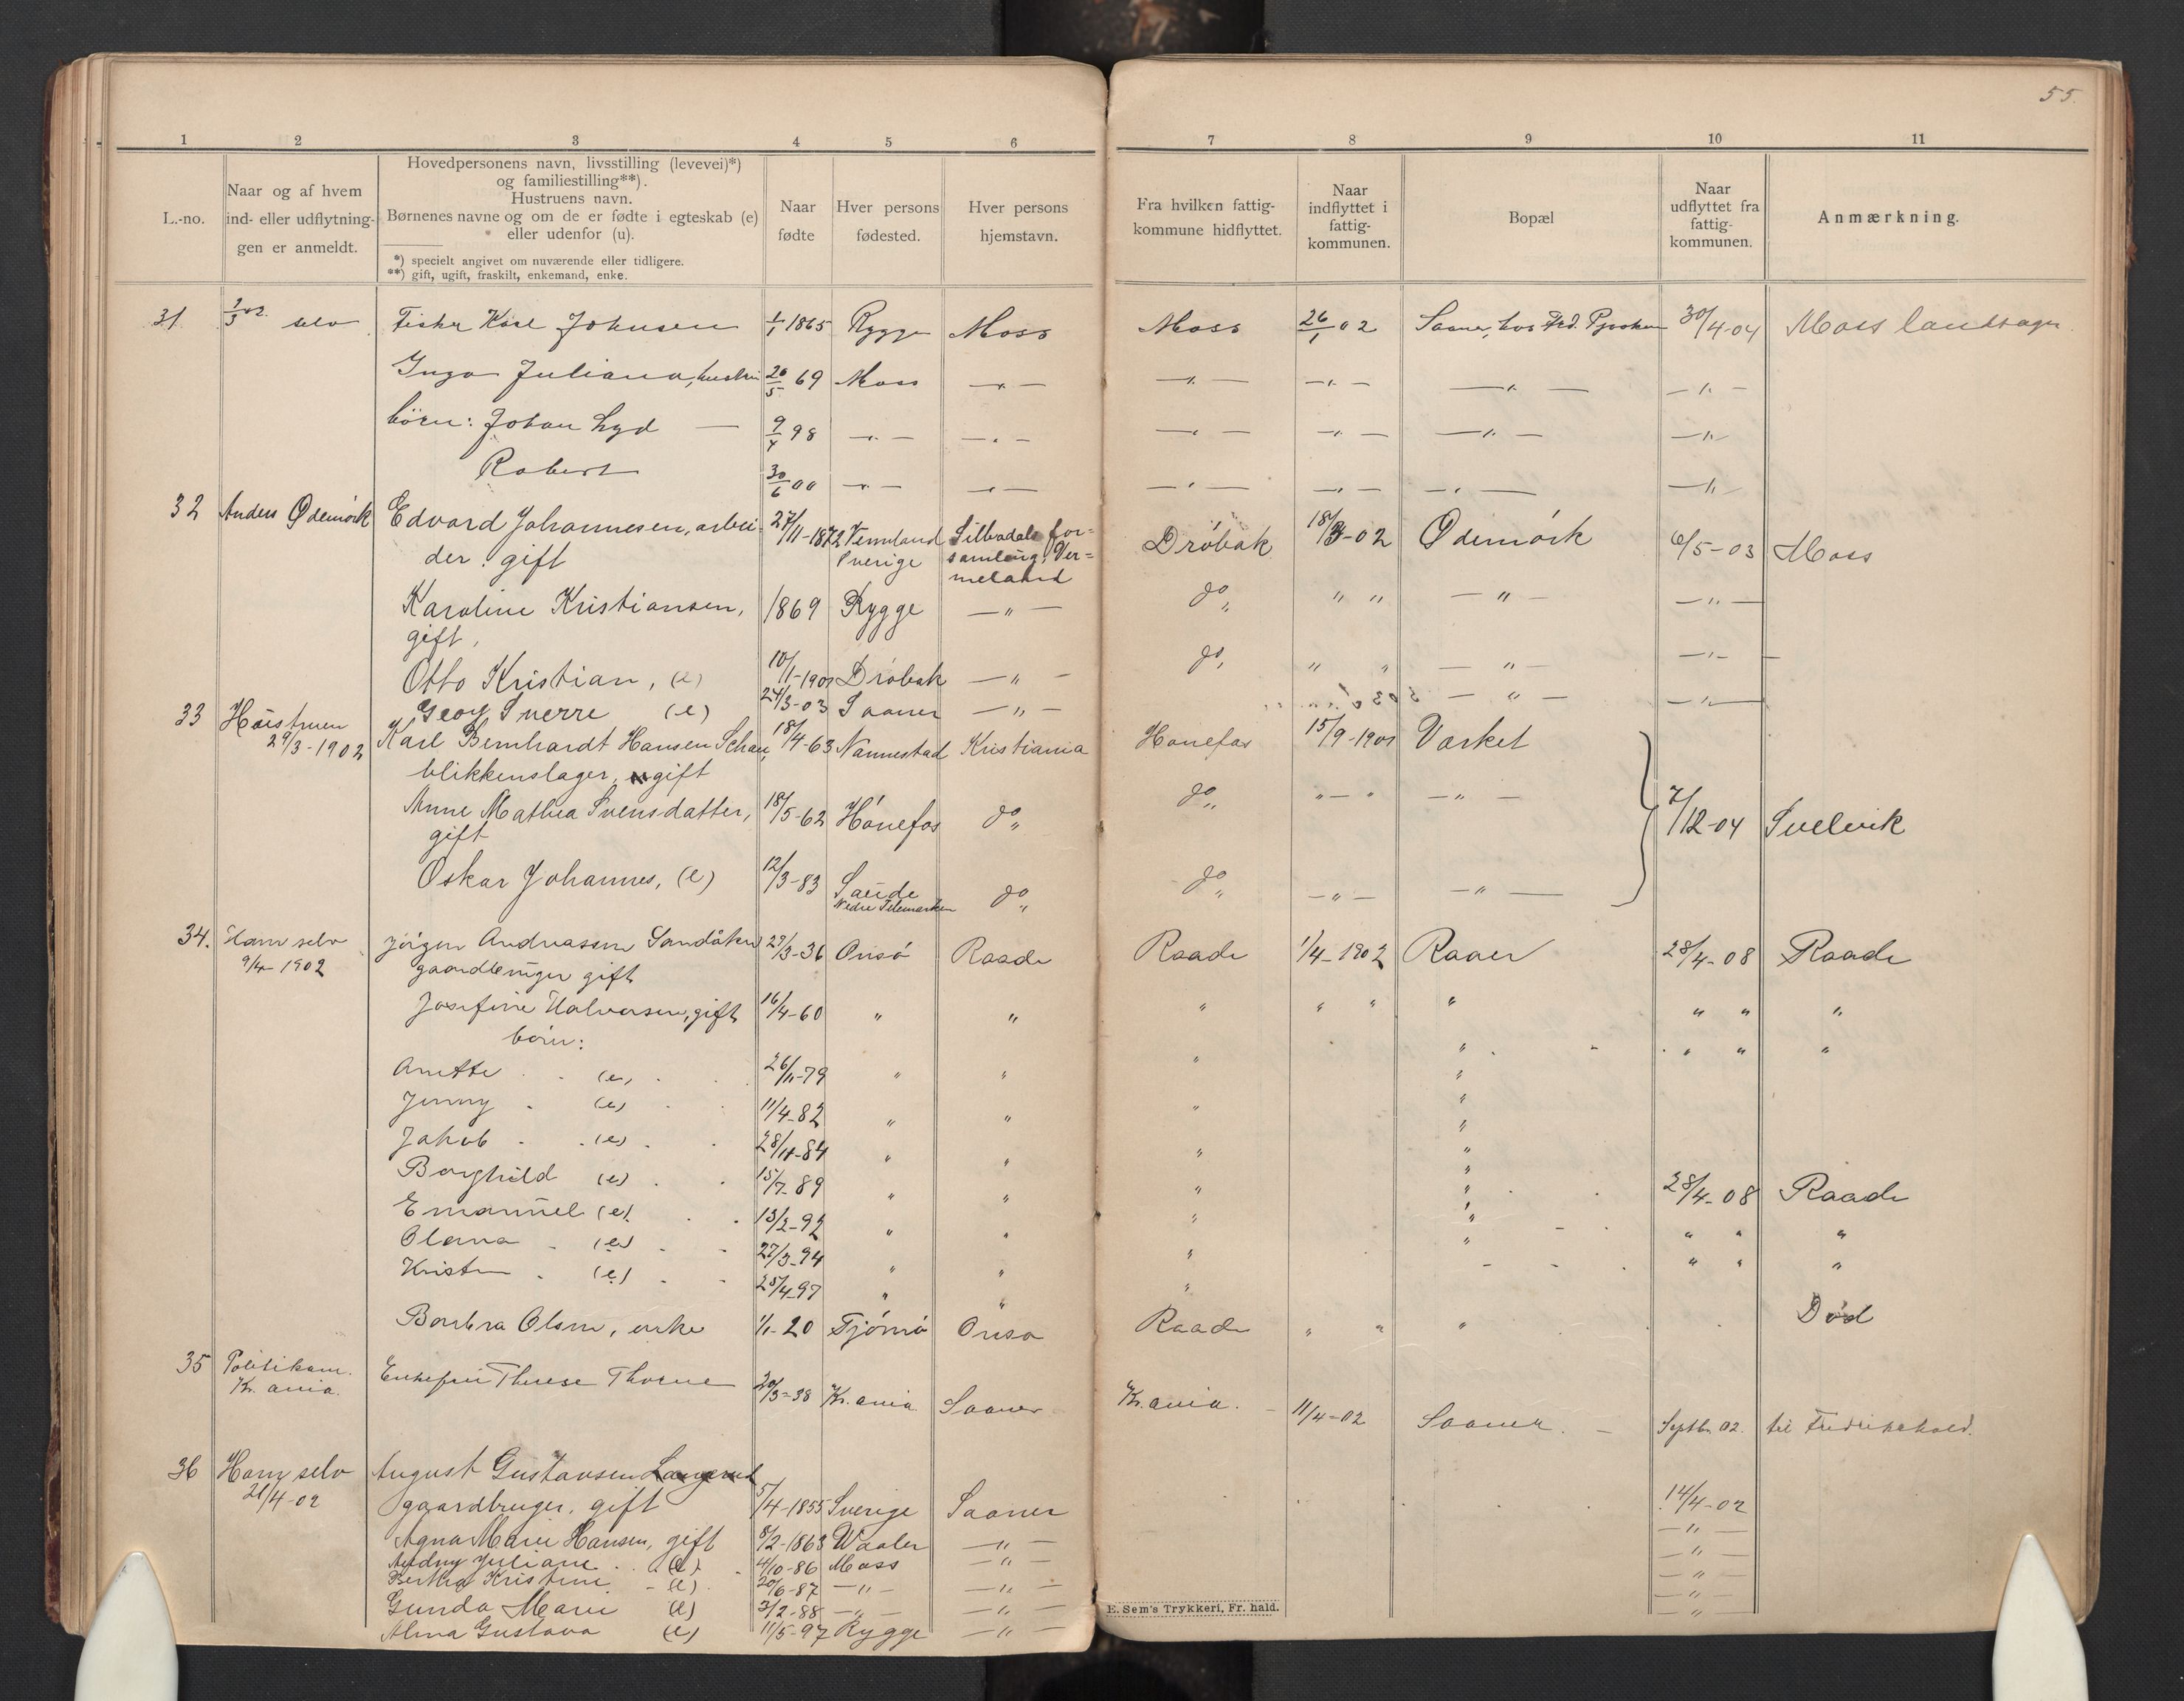 55.
1 2 3 4 5 6 7 8 9 10 11
L.-no.
Naar og af hvem
ind- eller udflytnin-
gen er anmeldt.
Hovedpersonens navn, livsstilling (levevei)*)
og familiestilling**).
Hustruens navn.
Børnenes navne og om de er fødte i egteskab (e)
eller udenfor (u).
*) specielt angivet om nuværende eller tidligere.
**) gift, ugift, fraskilt, enkemand, enke.
Naar
fødte
Hver persons
fødested.
Hver persons
hjemstavn.
Fra hvilken fattig-
kommune hidflyttet.
Naar
indflyttet i
fattig-
kommunen.
Bopæl
Naar
udflyttet fra
fattig-
kommunen.
Anmærkning.
31. 2/3 02. selv Fisker Karl Johnsen 1/1 1865 Rygge Moss Moss 26/1 02 Saaner, hos Fred. 30/4-04 Moss landsogn.
Inga Juliana, hustru 26/5 69 Moss —〃— —〃— —〃— —〃— —〃—
börn: Johan Lyd — 9/4 98 —〃— —〃— —〃— —〃— —〃— —〃—
Robert 30/6 00 —〃— —〃— —〃— —〃— —〃— —〃—
32 Anders Ødemörk Edvard Johannesen, arbei- 27/11-1872 Vermland Silbodals for- Dröbak 18/3-02 Ødemörk 6/5-03 Moss
der. gift Sverige samling, Ver-
meland
Karoline Kristiansen, 1869 Rygge —〃— do 〃 〃 —〃— —〃—
gift,
Otto Kristian, (e) 10/1-1901 Dröbak —〃— do, 〃 〃 —〃— —〃—
Georg Sverre (e) 24/3-03 Saaner —〃— —〃— —〃—
33 Hüstruen Karl Bernhardt Hansen Schau, 18/4-63 Nannestad Kristiania Hönefos 15/9-1901 Værket
29/3-1902 blikkenslager, gift
Anne Mathea Svensdatter, 18/5-62 Hönefos do do 〃—〃 —〃— 7/12-04 Svelvik
gift
Oskar Johannes, (e) 12/3-83 Saude do do —〃— —〃—
Nedre Telemarken
34. Ham selv Jörgen Andreassen Sandåker 29/3-36 Onsö Raade Raade 1/4-1902 Raaer 28/4-08 Raade
9/4-1902 gaardbruger gift
Josefine Halvorsen, gift 16/4-60 〃 〃 〃 〃 〃 〃 〃 〃 〃
börn: 〃 〃 〃 〃
Anette (e) 26/11-79 〃 〃 〃 〃
Jenny (e) 11/4-82 〃 〃 〃 〃
Jakob (e) 28/4-84 〃 〃 〃 〃
Borghild (e) 15/7-89 〃 〃 〃 〃 28/4-08 Raade
Emanüel (e) 13/2-92 〃 〃 〃 〃 〃 〃 〃
Olava (e) 27/3-94 〃 〃 〃 〃 〃 〃 〃
Kristen (e) 25/4-97 〃 〃 〃
Barbra Olsen, enke 1/1-20 Tjömö Onsö Raade 〃 〃 〃 Död
35 Politikam. Enkefru Therese Thorne 20/3-38 Kr.ania Saaner Kr.ania. 11/4-02 Saaner. Septbr. 02. til Fredrikshald.
Kr. ania.
36 Ham selv August Gustavsen Langerud
21/4-02 gaardbruger, gift 5/4-1855 Sverige Saaner 14/4-02
Agna Marie Hansen, gift 8/2-1863 Waaler —〃— —〃—
Juliane (e) 4/10-86 Moss —〃— —〃—
Bertha Kristine (e) 20/6-87 —〃— —〃— —〃—
Gunda Marie (e) 3/2-88 —〃— —〃— —〃—
Alma Gustava (e) 11/5-97 Rygge —〃— —〃—
E. Sem's Trykkeri, Fr. hald.